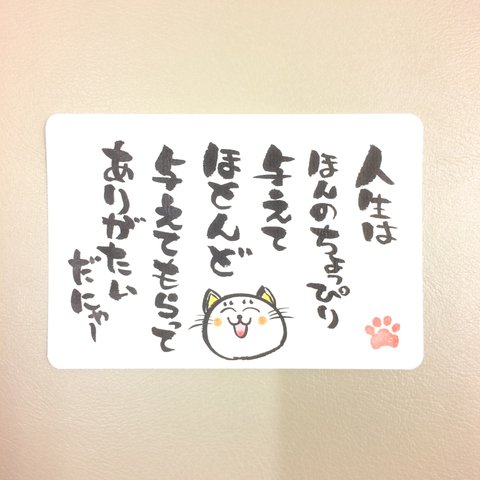 人生は
ほんのちょっぴり
与えて
ほとんど
与えてもらって
ありがたい
だにゃー